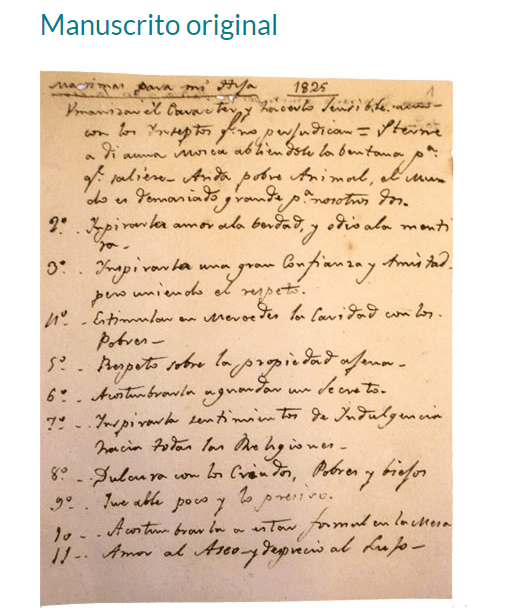 Manuscrito original
Maximas para mi Hija 1825
1
Umanizar el Caracter, y hacerlo sensible aun
con los Ynseptos q.e no perjudican = Sterne
a Di auna Mosca abriendole la bentana p.a
q.e saliese. Anda pobre Animal, el Mun
do es demaciado grande p.a nosotros dos.
2.o Inspirarla amor ala berdad, y odio ala menti
ra.
3.o Ynspirarla una gran Confianza y Amistad
pero uniendo el respeto.
4.o Estimular en Mercedes la Caridad con los
Pobres
5.o Respeto sobre la propiedad ajena
6.o Acostumbrarla aguardar un Secreto.
7.o Inspirarla sentimientos de Indulgencia
hacia todas las Religiones
8.o Dulzura con los Criados, Pobres y biejos
9.o Que able poco y lo presiso.
10 Acostumbrarla a estar formal en la Mesa
11 Amor al Aseo y desprecio al Lujo